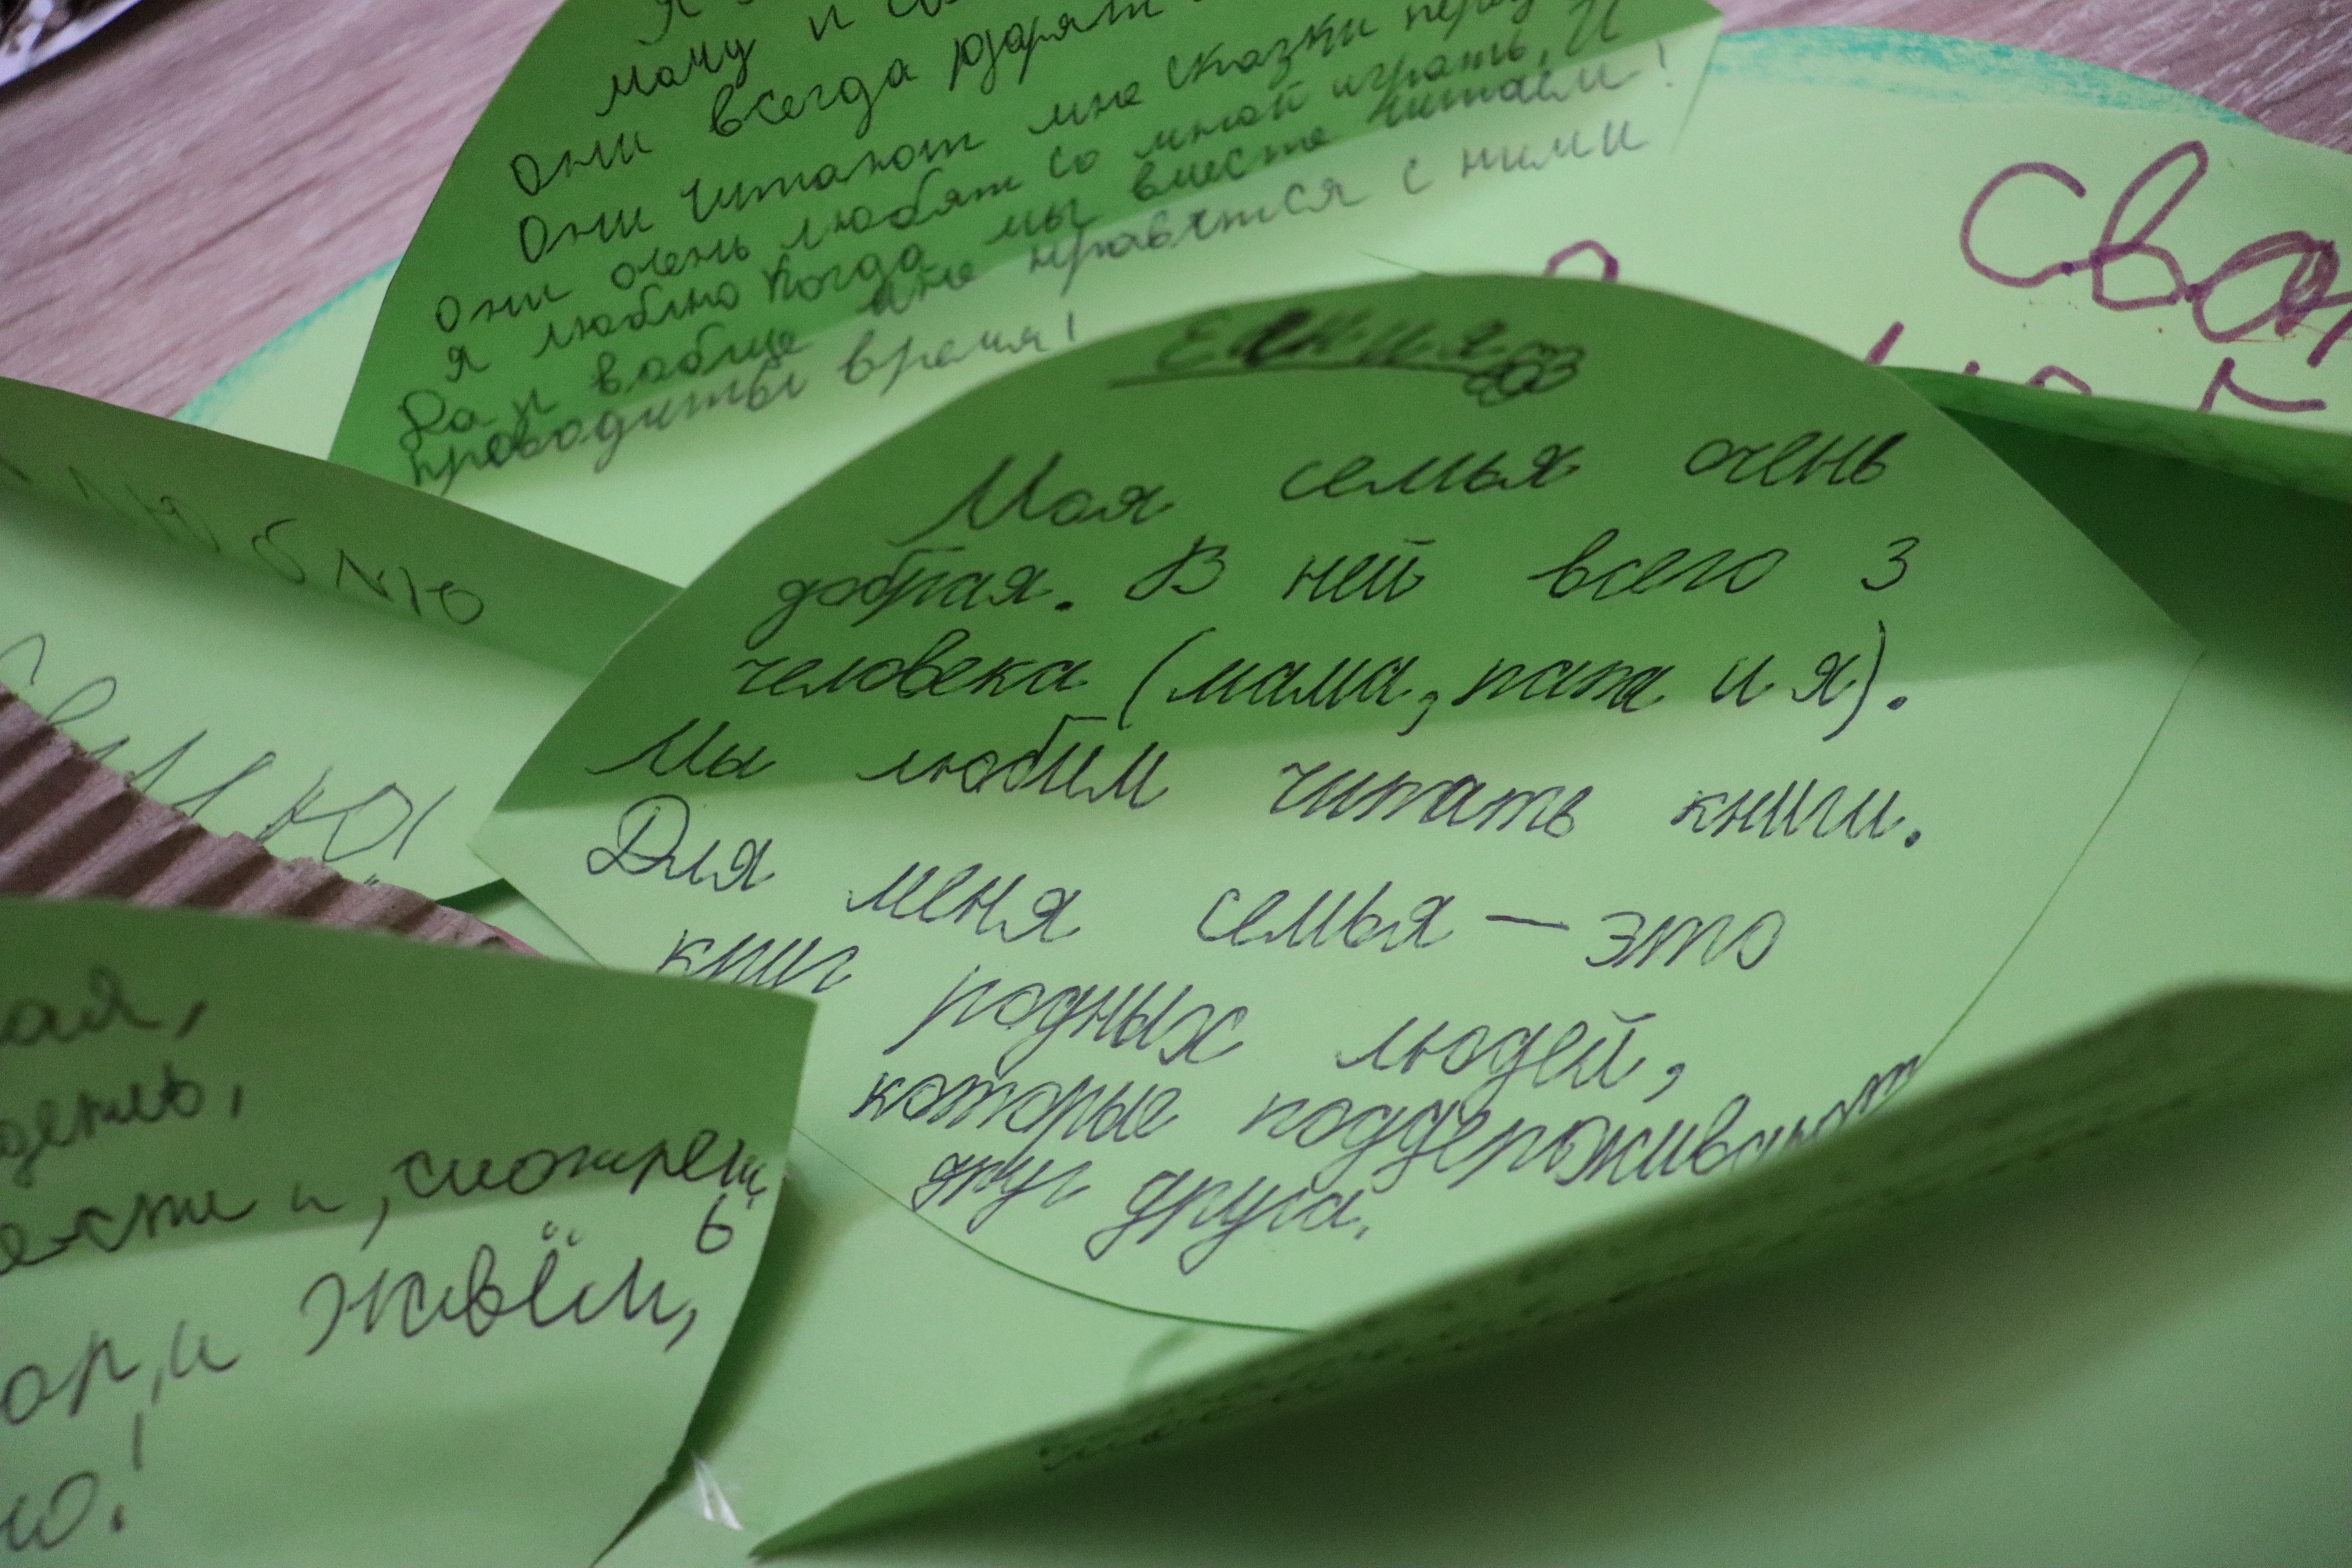 маму и
Они всегда дарят
Они читают мне сказки перед
Они очень любят со мной играть. И
я люблю когда мы вместе читаем!
Да и вабще мне нравятся с ними
проводить время!
сво
люблю
семью
Моя семья очень
добрая. В ней всего 3
человека (мама, папа и я).
Мы любим читать книги.
Для меня семья — это
круг родных людей,
которые поддерживают
друг друга.
ая,
и, смотрет
ь
и живём,
ю!